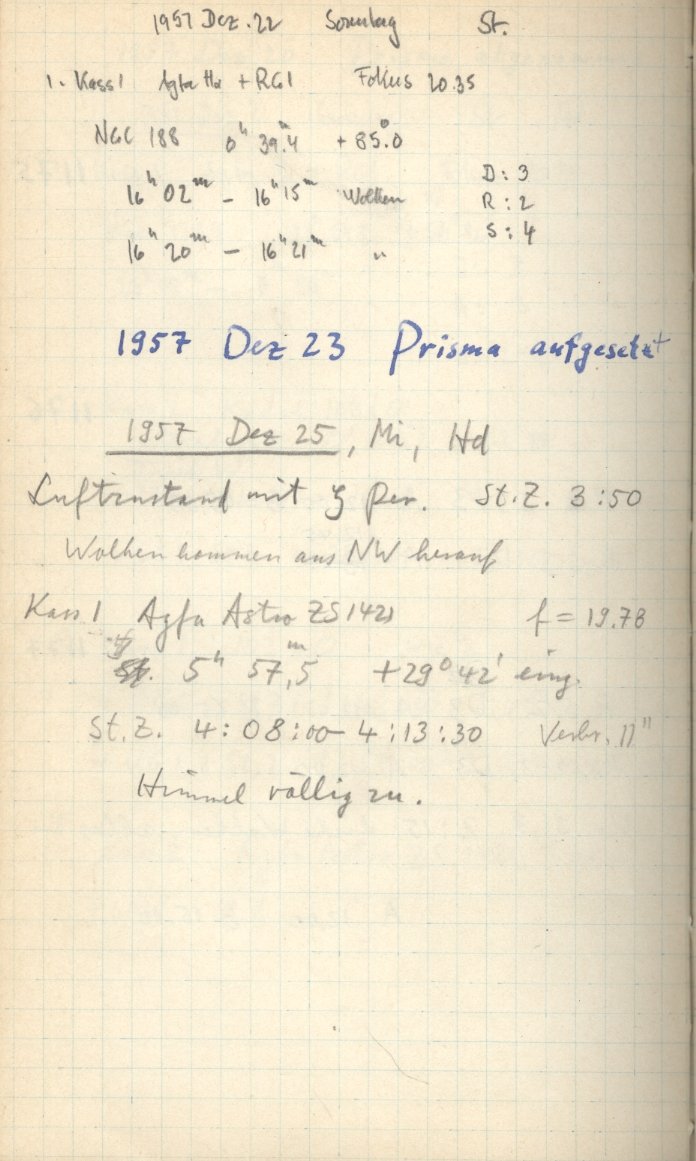 1957 Dez. 22 Sonntag St.
1. Kass 1 Agfa Ha + RG1 Fokus 20.35
NGC 188 0h 39.m4 +85.°0
16h 02m – 16h 15m Wolken D: 3
R: 2
16h 20m – 16h 21m " S: 4
1957 Dez 23 Prisma aufgesetzt
1957 Dez 25, Mi, Hd
Luftzustand mit ζ Per. St.Z. 3:50
Wolken kommen aus NW herauf
Kass 1 Agfa Astro ZS 1421 f = 19.78
5h 57,m5 +29° 42' eing.
St.Z. 4:08:00 – 4:13:30 Verbr. 11"
Himmel völlig zu.